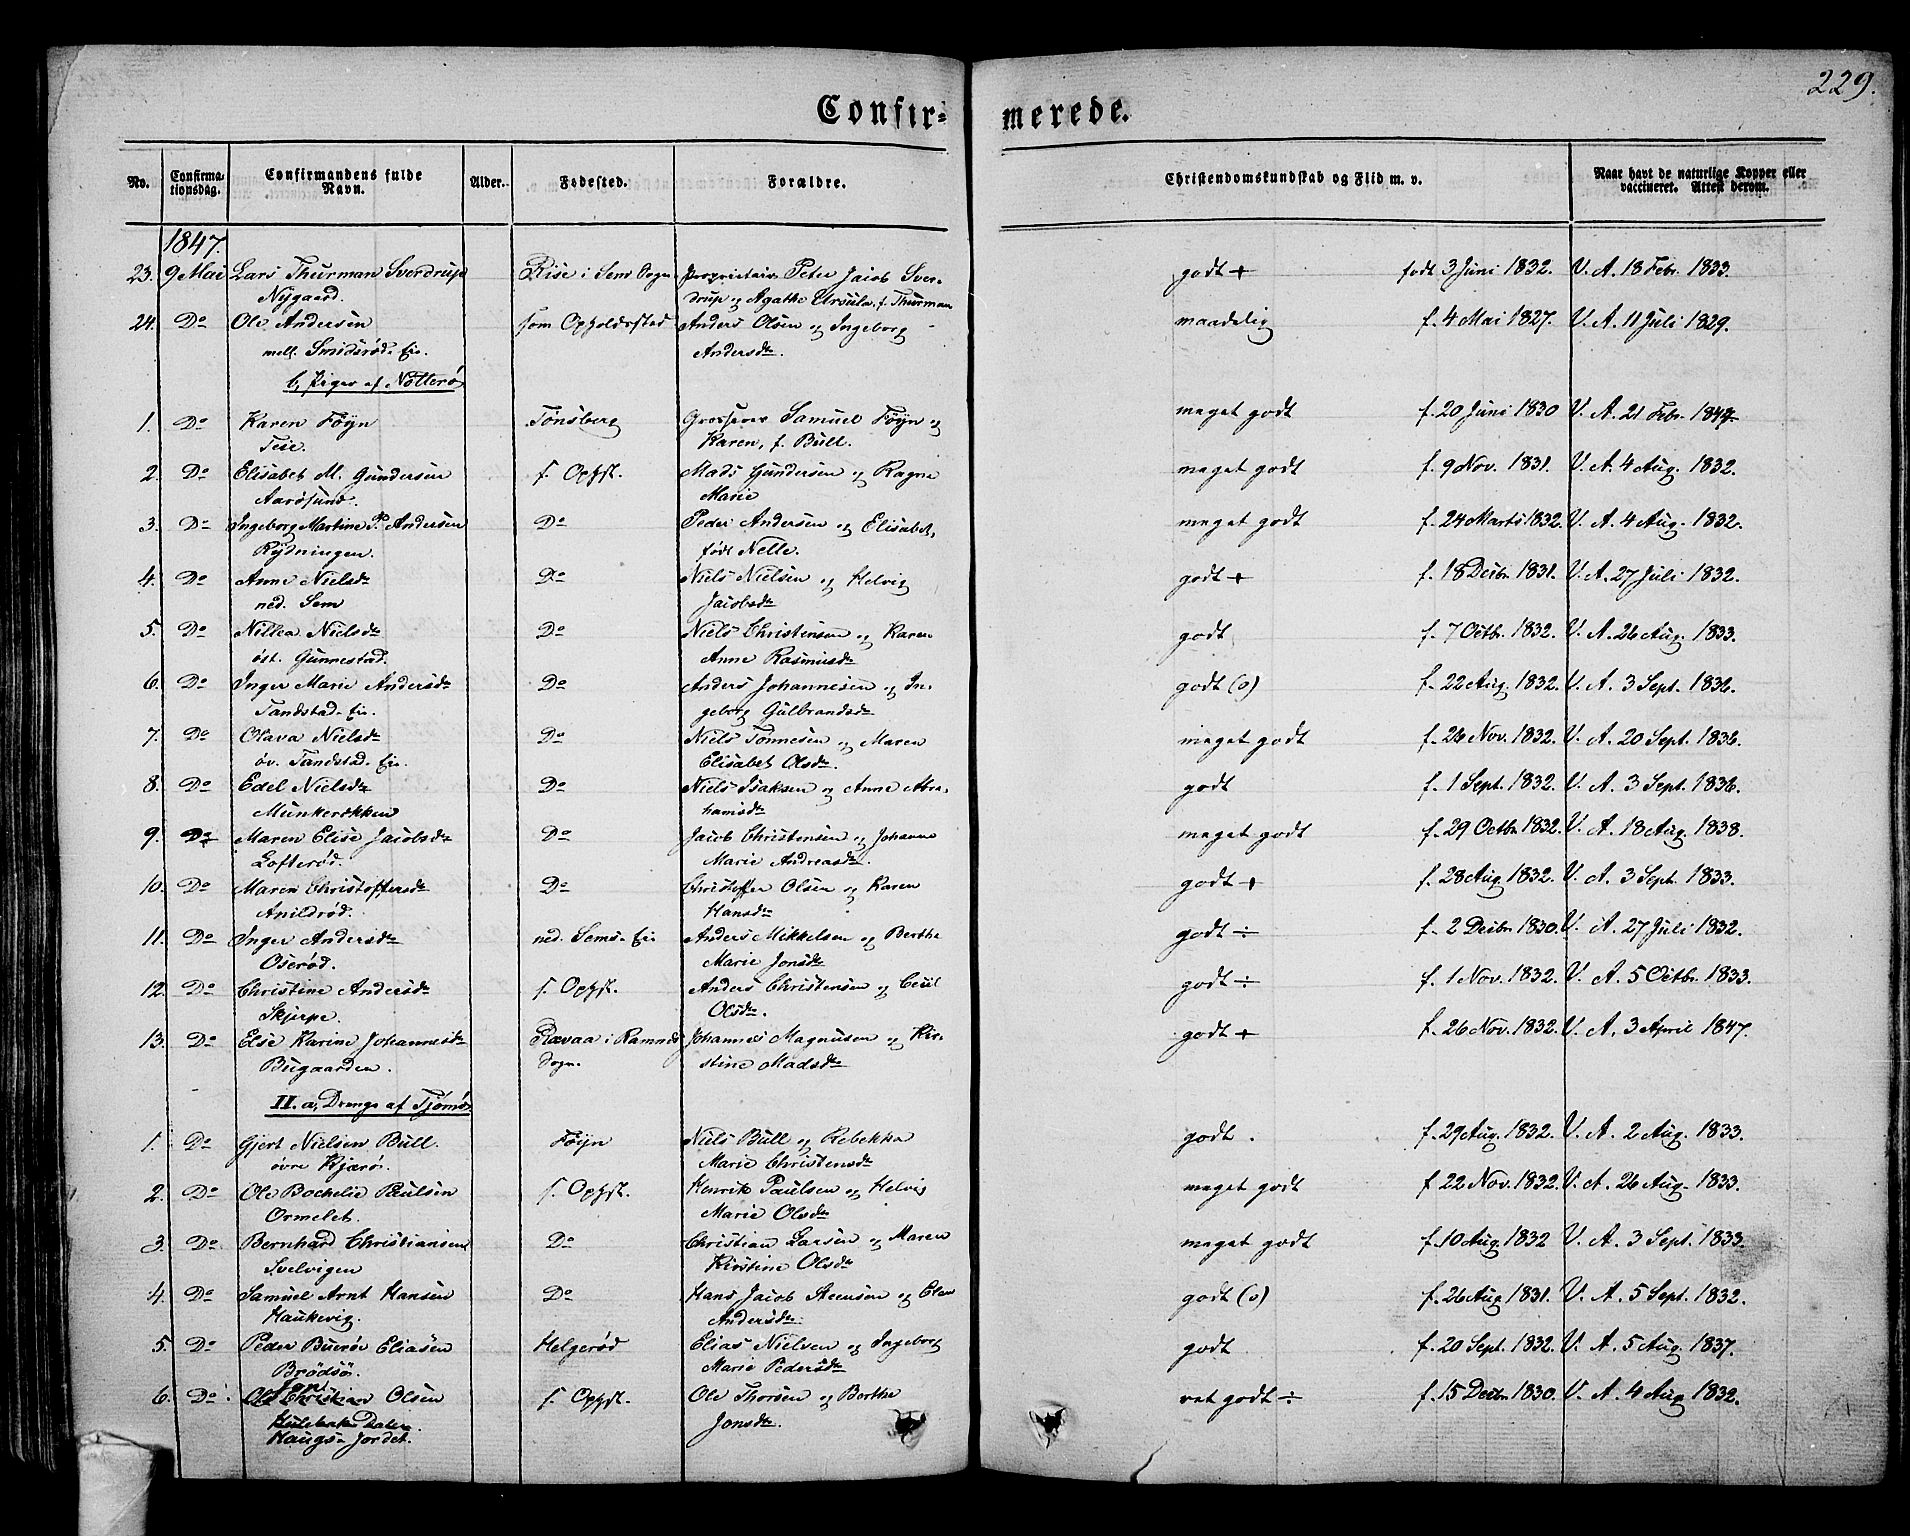 229.
Confir- merede.
No. Confirmationsdag. Confirmandens fulde Navn. Alder. Fødested. Forældre. Christendomskundskab og Flid m. v. Naar havt de naturlige Kopper eller vaccineret. Attest derom.
1847.
23. 9 Mai Lars Thurman Sverdrup Rise i Sems Sogn Proprietair Peter Jacob Sver- godt + født 3 Juni 1832. V. A. 18 Febr. 1833.
Nygaard. drup og Agathe Ursula f. Thurman
24. Do Ole Andersen som Opholdssted Anders Olsen og Ingeborg maadelig f. 4 Mai 1827. V. A. 11 Juli 1829.
mell. Smidsrød-Eie. Andersdr.
b, Piger af Nøtterø
1. Do Karen Føyn Tønsberg Grosserer Samuel Føyn og meget godt f. 20 Juni 1830 V. A. 21 Febr. 1847.
Teie. Karen, f. Bull.
2. Do Elisabet M. Gundersen s. Ophst. Mads Gundersen og Ragne meget godt f. 9 Nov. 1831. V. A. 4 Aug. 1832.
Aarøsund. Marie
3. Do Ingeborg Martine P. Andersen Do Peder Andersen og Elisabet, meget godt f. 24 Marts 1832. V. A. 4 Aug. 1832.
Rydningen. født Nelle.
4. Do Anne Nielsdr Do Niels Nielsen og Helvig godt + f. 18 Decbr 1831. V. A. 27 Juli 1832.
ned. Sem Jacobsdr
5. Do Nillea Nielsdr Do Niels Christensen og Karen godt f. 7 Octbr. 1832. V. A. 26 Aug. 1833.
øst. Gunnestad. Anne Rasmusdr
6. Do Inger Marie Andersdr Do Anders Johannesen og In- godt (o) f. 22 Aug. 1832. V. A. 3 Sept. 1836.
Tandstad-Eie. geborg Gulbrandsdr
7. Do Olava Nielsdr Do Niels Tønnesen og Maren meget godt f. 24 Nov. 1832. V. A. 20 Sept. 1836.
øv. Tandstad-Eie. Elisabet Olsdr.
8. Do Edel Nielsdr Do Niels Isaksen og Anne Abra- godt f. 1 Sept. 1832. V. A. 3 Sept. 1836.
Munkerekken hamsdr
9. Do Maren Elise Jacobsdr Do Jacob Christensen og Johanne meget godt f. 29 Octbr 1832. V. A. 18 Aug. 1838.
Lofterød. Marie Andreasdr.
10. Do Maren Christoffersdr Do Christoffer Olsen og Karen godt + f. 28 Aug. 1832. V. A. 3 Sept. 1833.
Anildrød. Hansdr
11. Do Inger Andersdr ned. Sems-Eie Anders Mikkelsen og Berthe godt ÷ f. 2 Decbr 1830. V. A. 27 Juli 1832.
Oserød. Marie Jonsdr
12. Do Christine Andersdr s. Ophst. Anders Christensen og Cecil godt ÷ f. 1 Nov. 1832. V. A. 5 Octbr. 1833.
Skjerpe. Olsdr.
13. Do Else Karine Johannesdr Rævaa i Ramnes Johannes Magnusen og Kir- godt + f. 26 Nov. 1832. V. A. 3 April 1847.
Bugaarden. Sogn. stine Madsdr
II. a, Drenge af Tjømø
1. Do Gjert Nielsen Bull. Føyn Niels Bull og Rebekka godt. f. 29 Aug. 1832. V. A. 2 Aug. 1833.
øvre Kjærø. Marie Christensdr
2. Do Ole Bochelie Paulsen s. Ophst. Henrik Paulsen og Helvig meget godt f. 22 Nov. 1832. V. A. 26 Aug. 1833.
Ormelet. Marie Olsdr
3. Do Bernhard Christiansen Do Christian Larsen og Maren meget godt f. 10 Aug. 1832 V. A. 3 Sept. 1833.
Svelvigen Kirstine Olsdr
4. Do Samuel Arnt Hansen Do Hans Jacob Steensen og Elen godt (o) f. 26 Aug. 1831. V. A. 5 Sept. 1832.
Haukevig. Andersdr.
5. Do Peder Buerør Eliasen Helgerød Elias Nielsen og Ingeborg godt f. 20 Sept. 1832. V. A. 5 Aug. 1837.
Brødsø. Marie Pedersdr
6. Do Ole Christian Olsen s. Ophst. Ole Thorsen og Berthe ret godt ÷ f. 15 Decbr 1830. V. A. 4 Aug. 1832.
Hulebak Dalen Jonsdr
Haugs-Jordet.